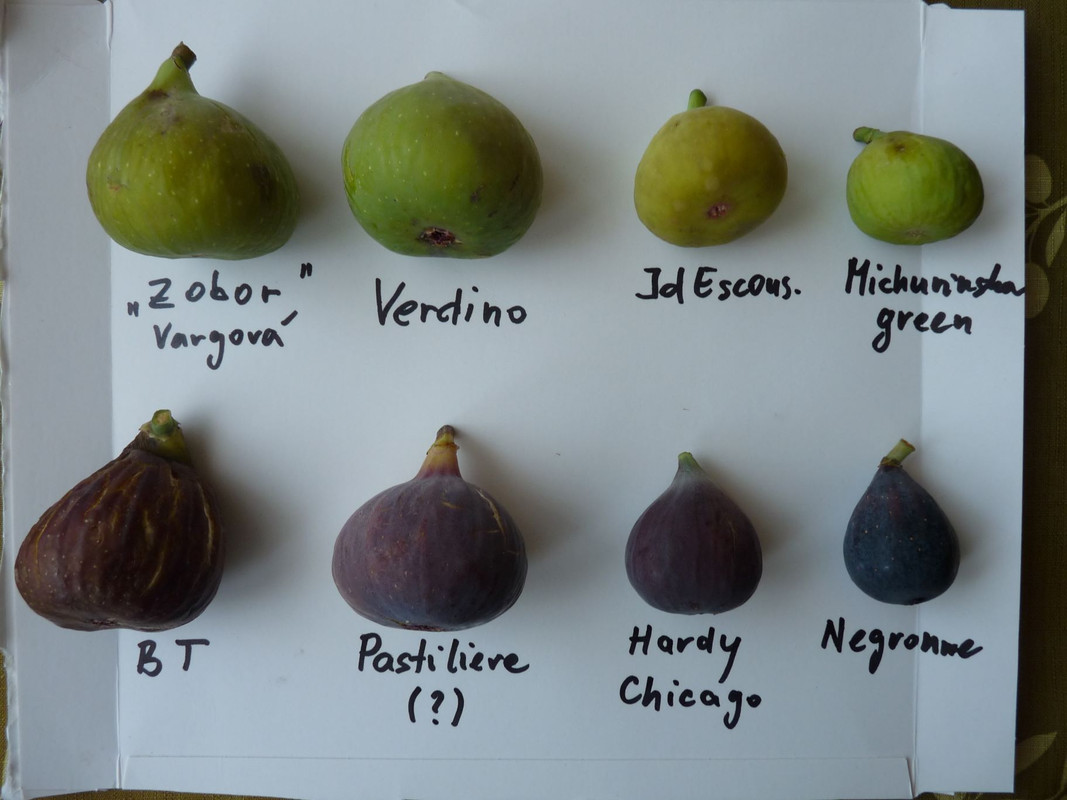 „Zobor"
Vargová
Verdino
Jd Escous.
Michurinska
green
BT
Pastiliere
(?)
Hardy
Chicago
Negronne